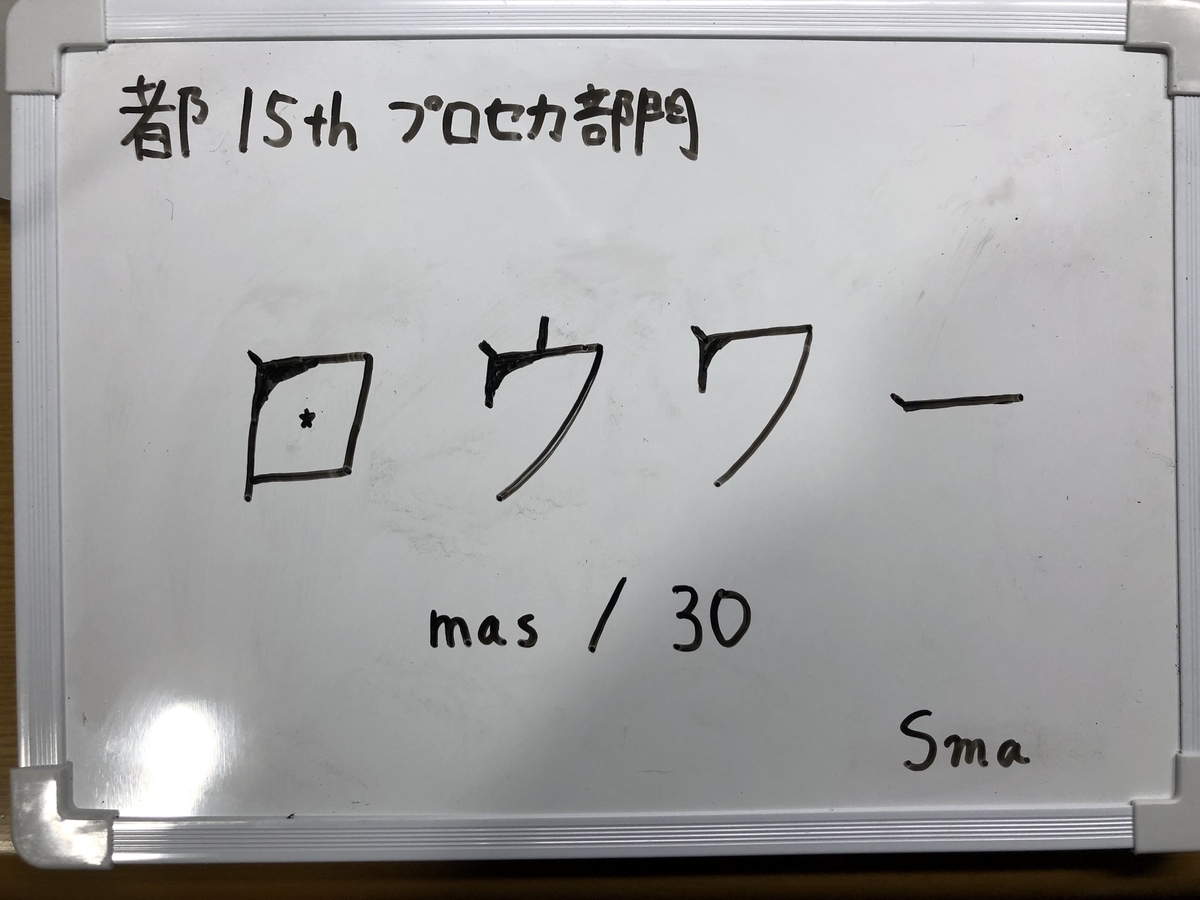 都 15th プロセカ部門
ロウワー
mas / 30
Sma